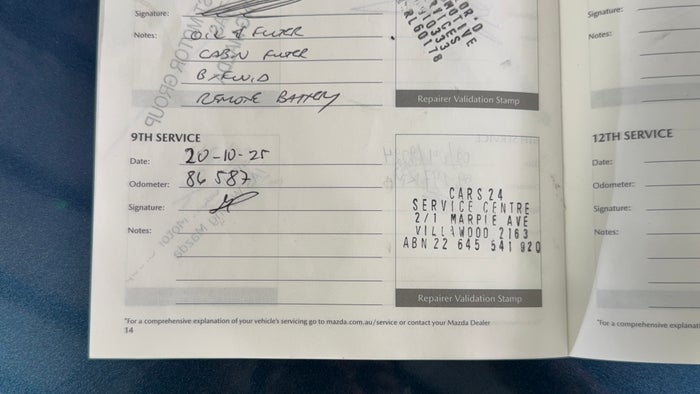 Signature:
Notes: OIL & FILTER
CABIN FILTER
B/FLUID
REMOTE BATTERY
Repairer Validation Stamp
9TH SERVICE
Date: 20-10-25
Odometer: 86 587
Signature:
Notes:
CARS 24
SERVICE CENTRE
2/1 MARPLE AVE
VILLAWOOD 2163
ABN 22 645 541 920
Repairer Validation Stamp
*For a comprehensive explanation of your vehicle's servicing go to mazda.com.au/service or contact your Mazda Dealer
14
Signature:
Notes:
12TH SERVICE
Date:
Odometer:
Signature:
Notes:
*For a comprehensive